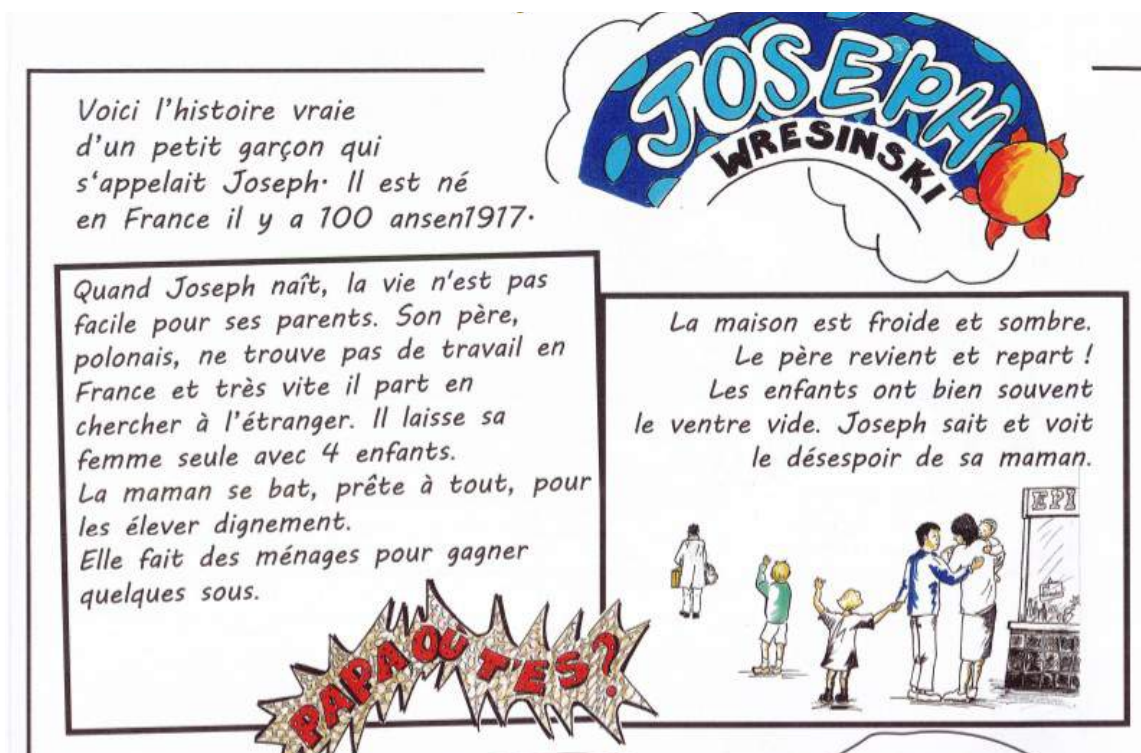 JOSEPH
WRESINSKI
Voici l'histoire vraie
d'un petit garçon qui
s'appelait Joseph. Il est né
en France il y a 100 ansen1917.
Quand Joseph naît, la vie n'est pas
facile pour ses parents. Son père,
polonais, ne trouve pas de travail en
France et très vite il part en
chercher à l'étranger. Il laisse sa
femme seule avec 4 enfants.
La maman se bat, prête à tout, pour
les élever dignement.
Elle fait des ménages pour gagner
quelques sous.
PAPA OÙ T'ES?
La maison est froide et sombre.
Le père revient et repart !
Les enfants ont bien souvent
le ventre vide. Joseph sait et voit
le désespoir de sa maman.
EPI